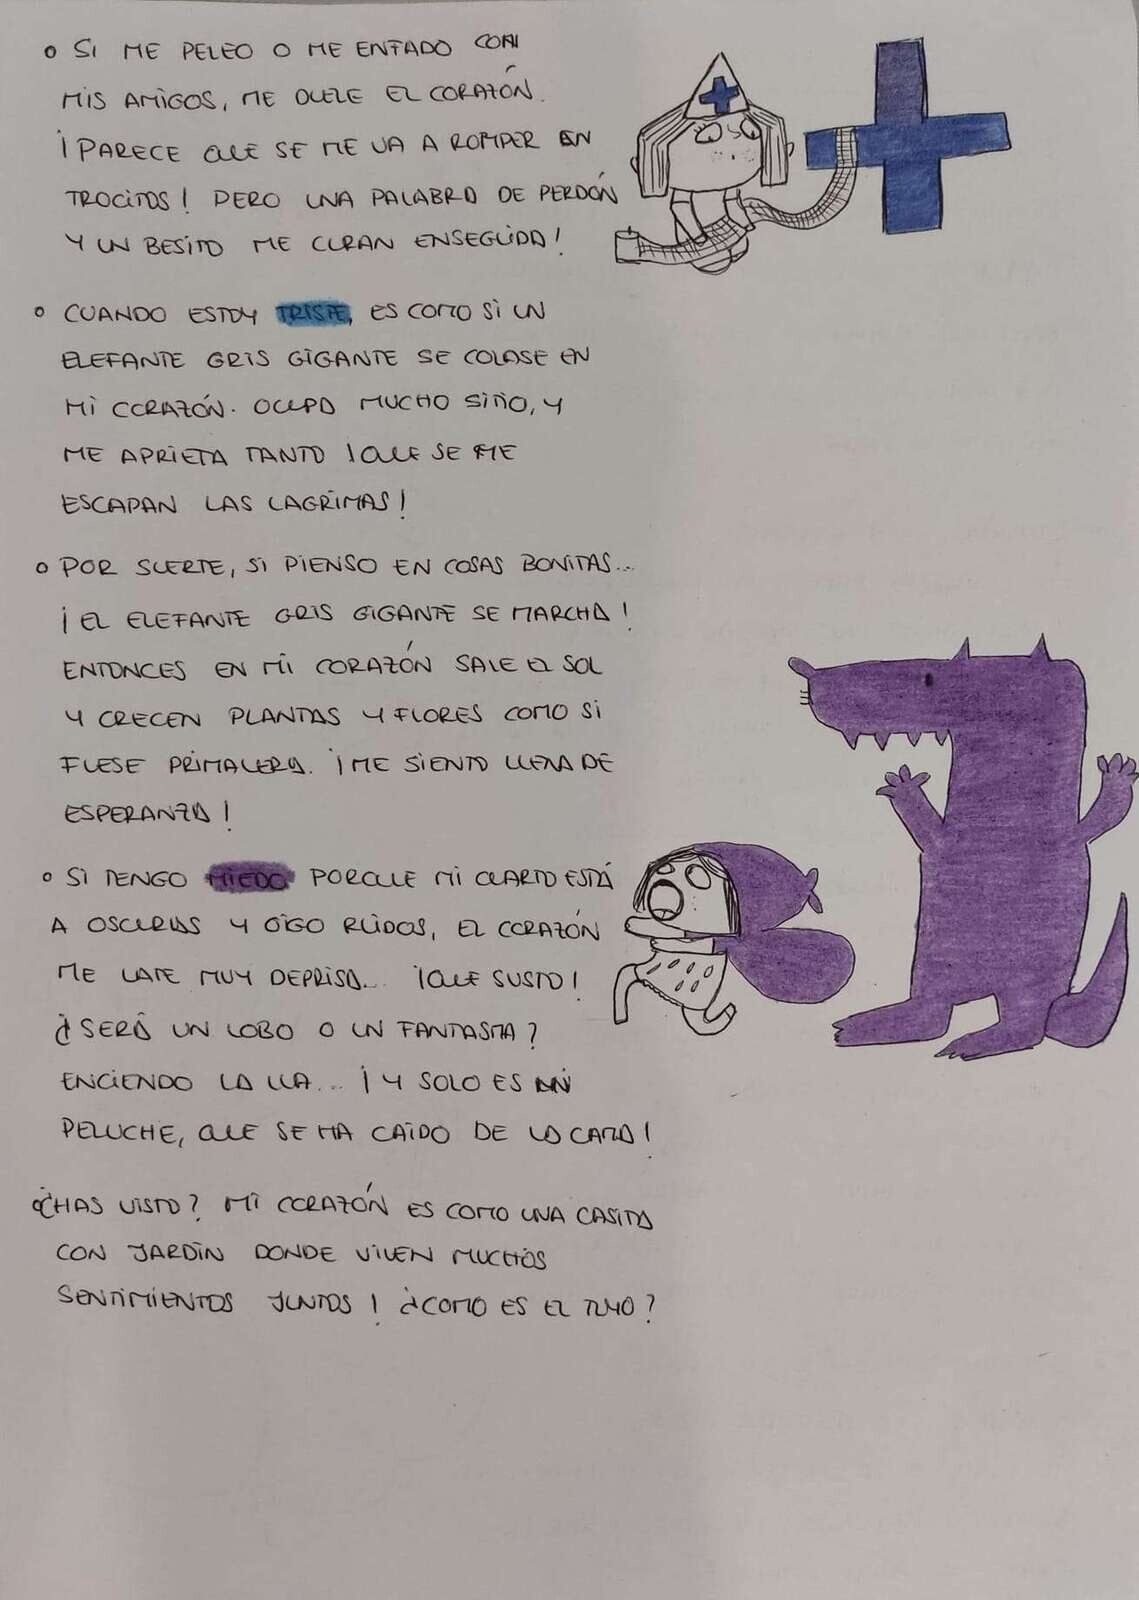 SI ME PELEO O ME ENFADO CON
MIS AMIGOS, ME DUELE EL CORAZÓN.
¡PARECE QUE SE ME VA A ROMPER EN
TROCITOS! PERO UNA PALABRA DE PERDÓN
Y UN BESITO ME CURAN ENSEGUIDA!
CUANDO ESTOY TRISTE, ES COMO SI UN
ELEFANTE GRIS GIGANTE SE COLASE EN
MI CORAZÓN. OCUPA MUCHO SITIO, Y
ME APRIETA TANTO ¡QUE SE ME
ESCAPAN LAS LAGRIMAS!
POR SUERTE, SI PIENSO EN COSAS BONITAS...
¡EL ELEFANTE GRIS GIGANTE SE MARCHA!
ENTONCES EN MI CORAZÓN SALE EL SOL
Y CRECEN PLANTAS Y FLORES COMO SI
FUESE PRIMAVERA. ¡ME SIENTO LLENA DE
ESPERANZA!
SI TENGO MIEDO PORQUE MI CUARTO ESTÁ
A OSCURAS Y OIGO RUIDOS, EL CORAZÓN
ME LATE MUY DEPRISA... ¡QUE SUSTO!
¿SERÁ UN LOBO O UN FANTASMA?
ENCIENDO LA LUZ... ¡Y SOLO ES MI
PELUCHE, QUE SE HA CAIDO DE LA CAMA!
¿HAS VISTO? MI CORAZÓN ES COMO UNA CASITA
CON JARDIN DONDE VIVEN MUCHOS
SENTIMIENTOS JUNTOS! ¿COMO ES EL TUYO?